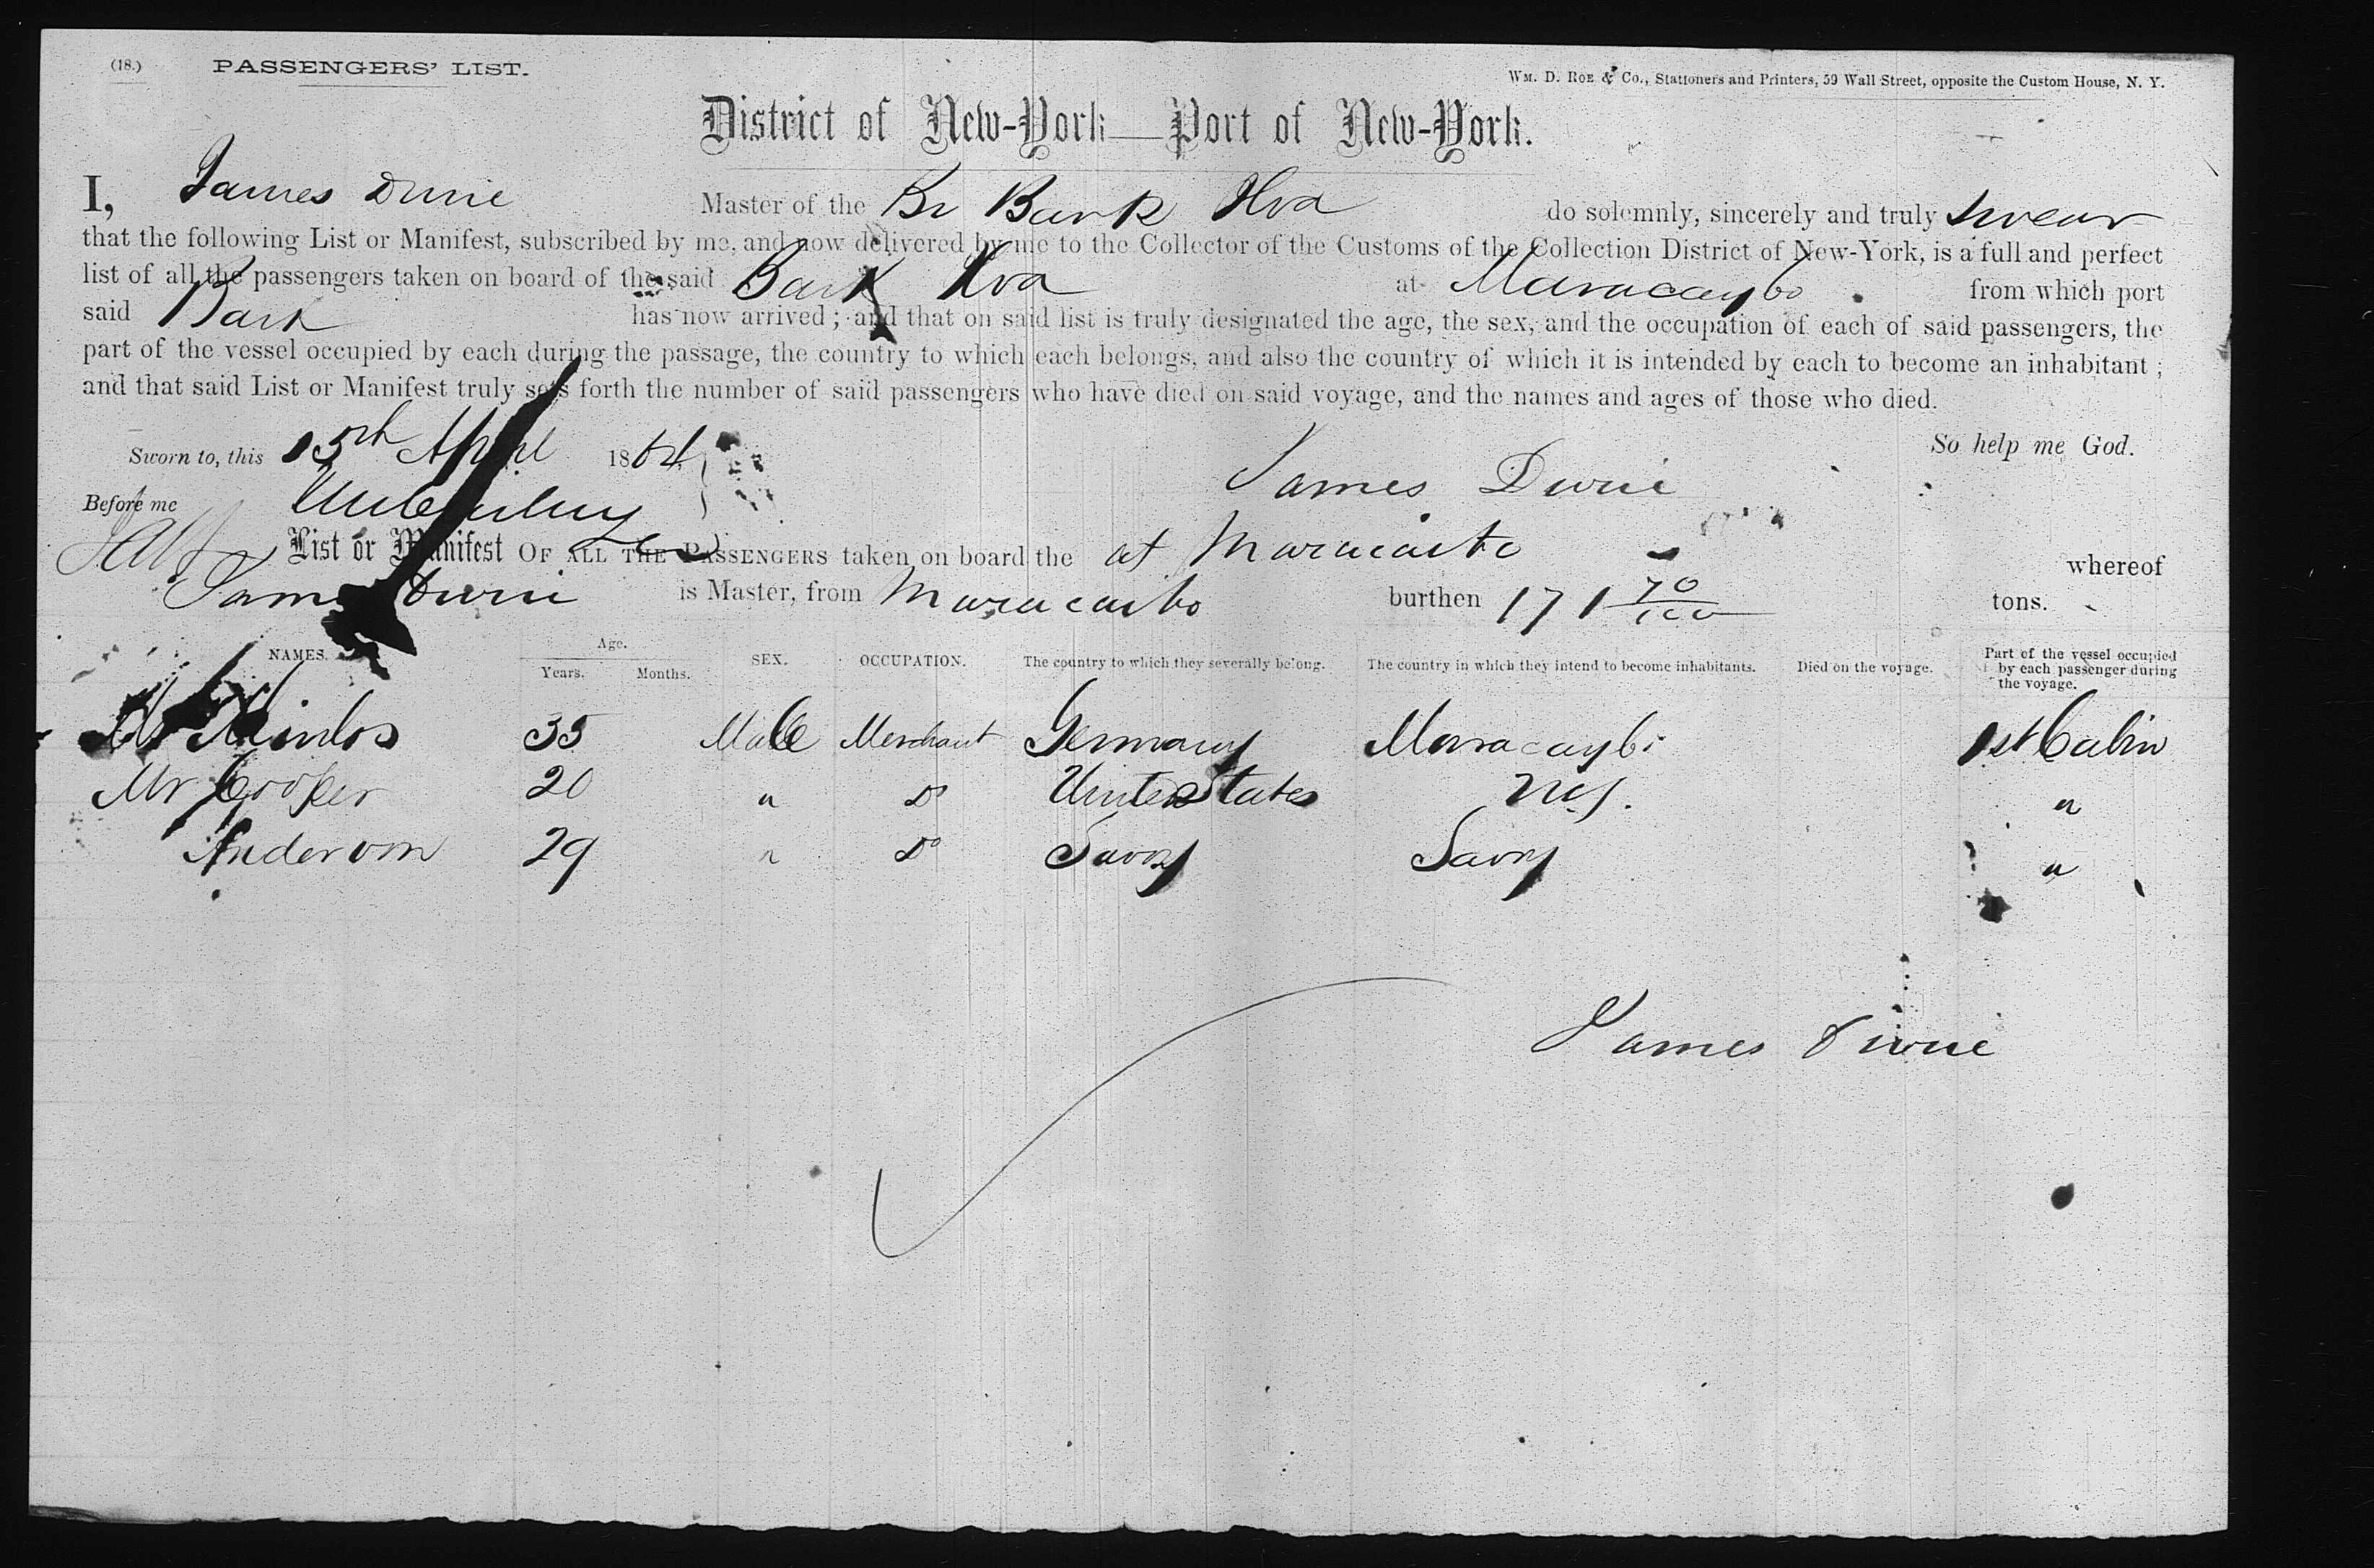 (18.) PASSENGERS' LIST.
WM. D. ROE & CO., Stationers and Printers, 59 Wall Street, opposite the Custom House, N. Y.
District of New-York—Port of New-York.
I, James Durie Master of the Br Bark Iva do solemnly, sincerely and truly swear
that the following List or Manifest, subscribed by me, and now delivered by me to the Collector of the Customs of the Collection District of New-York, is a full and perfect
list of all the passengers taken on board of the said Bark Iva at Maracaybo from which port
said Bark has now arrived; and that on said list is truly designated the age, the sex, and the occupation of each of said passengers, the
part of the vessel occupied by each during the passage, the country to which each belongs, and also the country of which it is intended by each to become an inhabitant;
and that said List or Manifest truly sets forth the number of said passengers who have died on said voyage, and the names and ages of those who died.
So help me God.
Sworn to, this 15th April 1864
James Durie
Before me
List or Manifest OF ALL THE PASSENGERS taken on board the at Maracaibo whereof
James Durie is Master, from Maracaibo burthen 171 70/100 tons.
NAMES. Age. Years. Months. SEX. OCCUPATION. The country to which they severally belong. The country in which they intend to become inhabitants. Died on the voyage. Part of the vessel occupied by each passenger during the voyage.
Mr 35 Male Merchant Germany Maracaybo 1st Cabin
Mr Cooper 20 " Do United States NY. "
Anderson 29 " Do Savoy Savoy "
James Durie